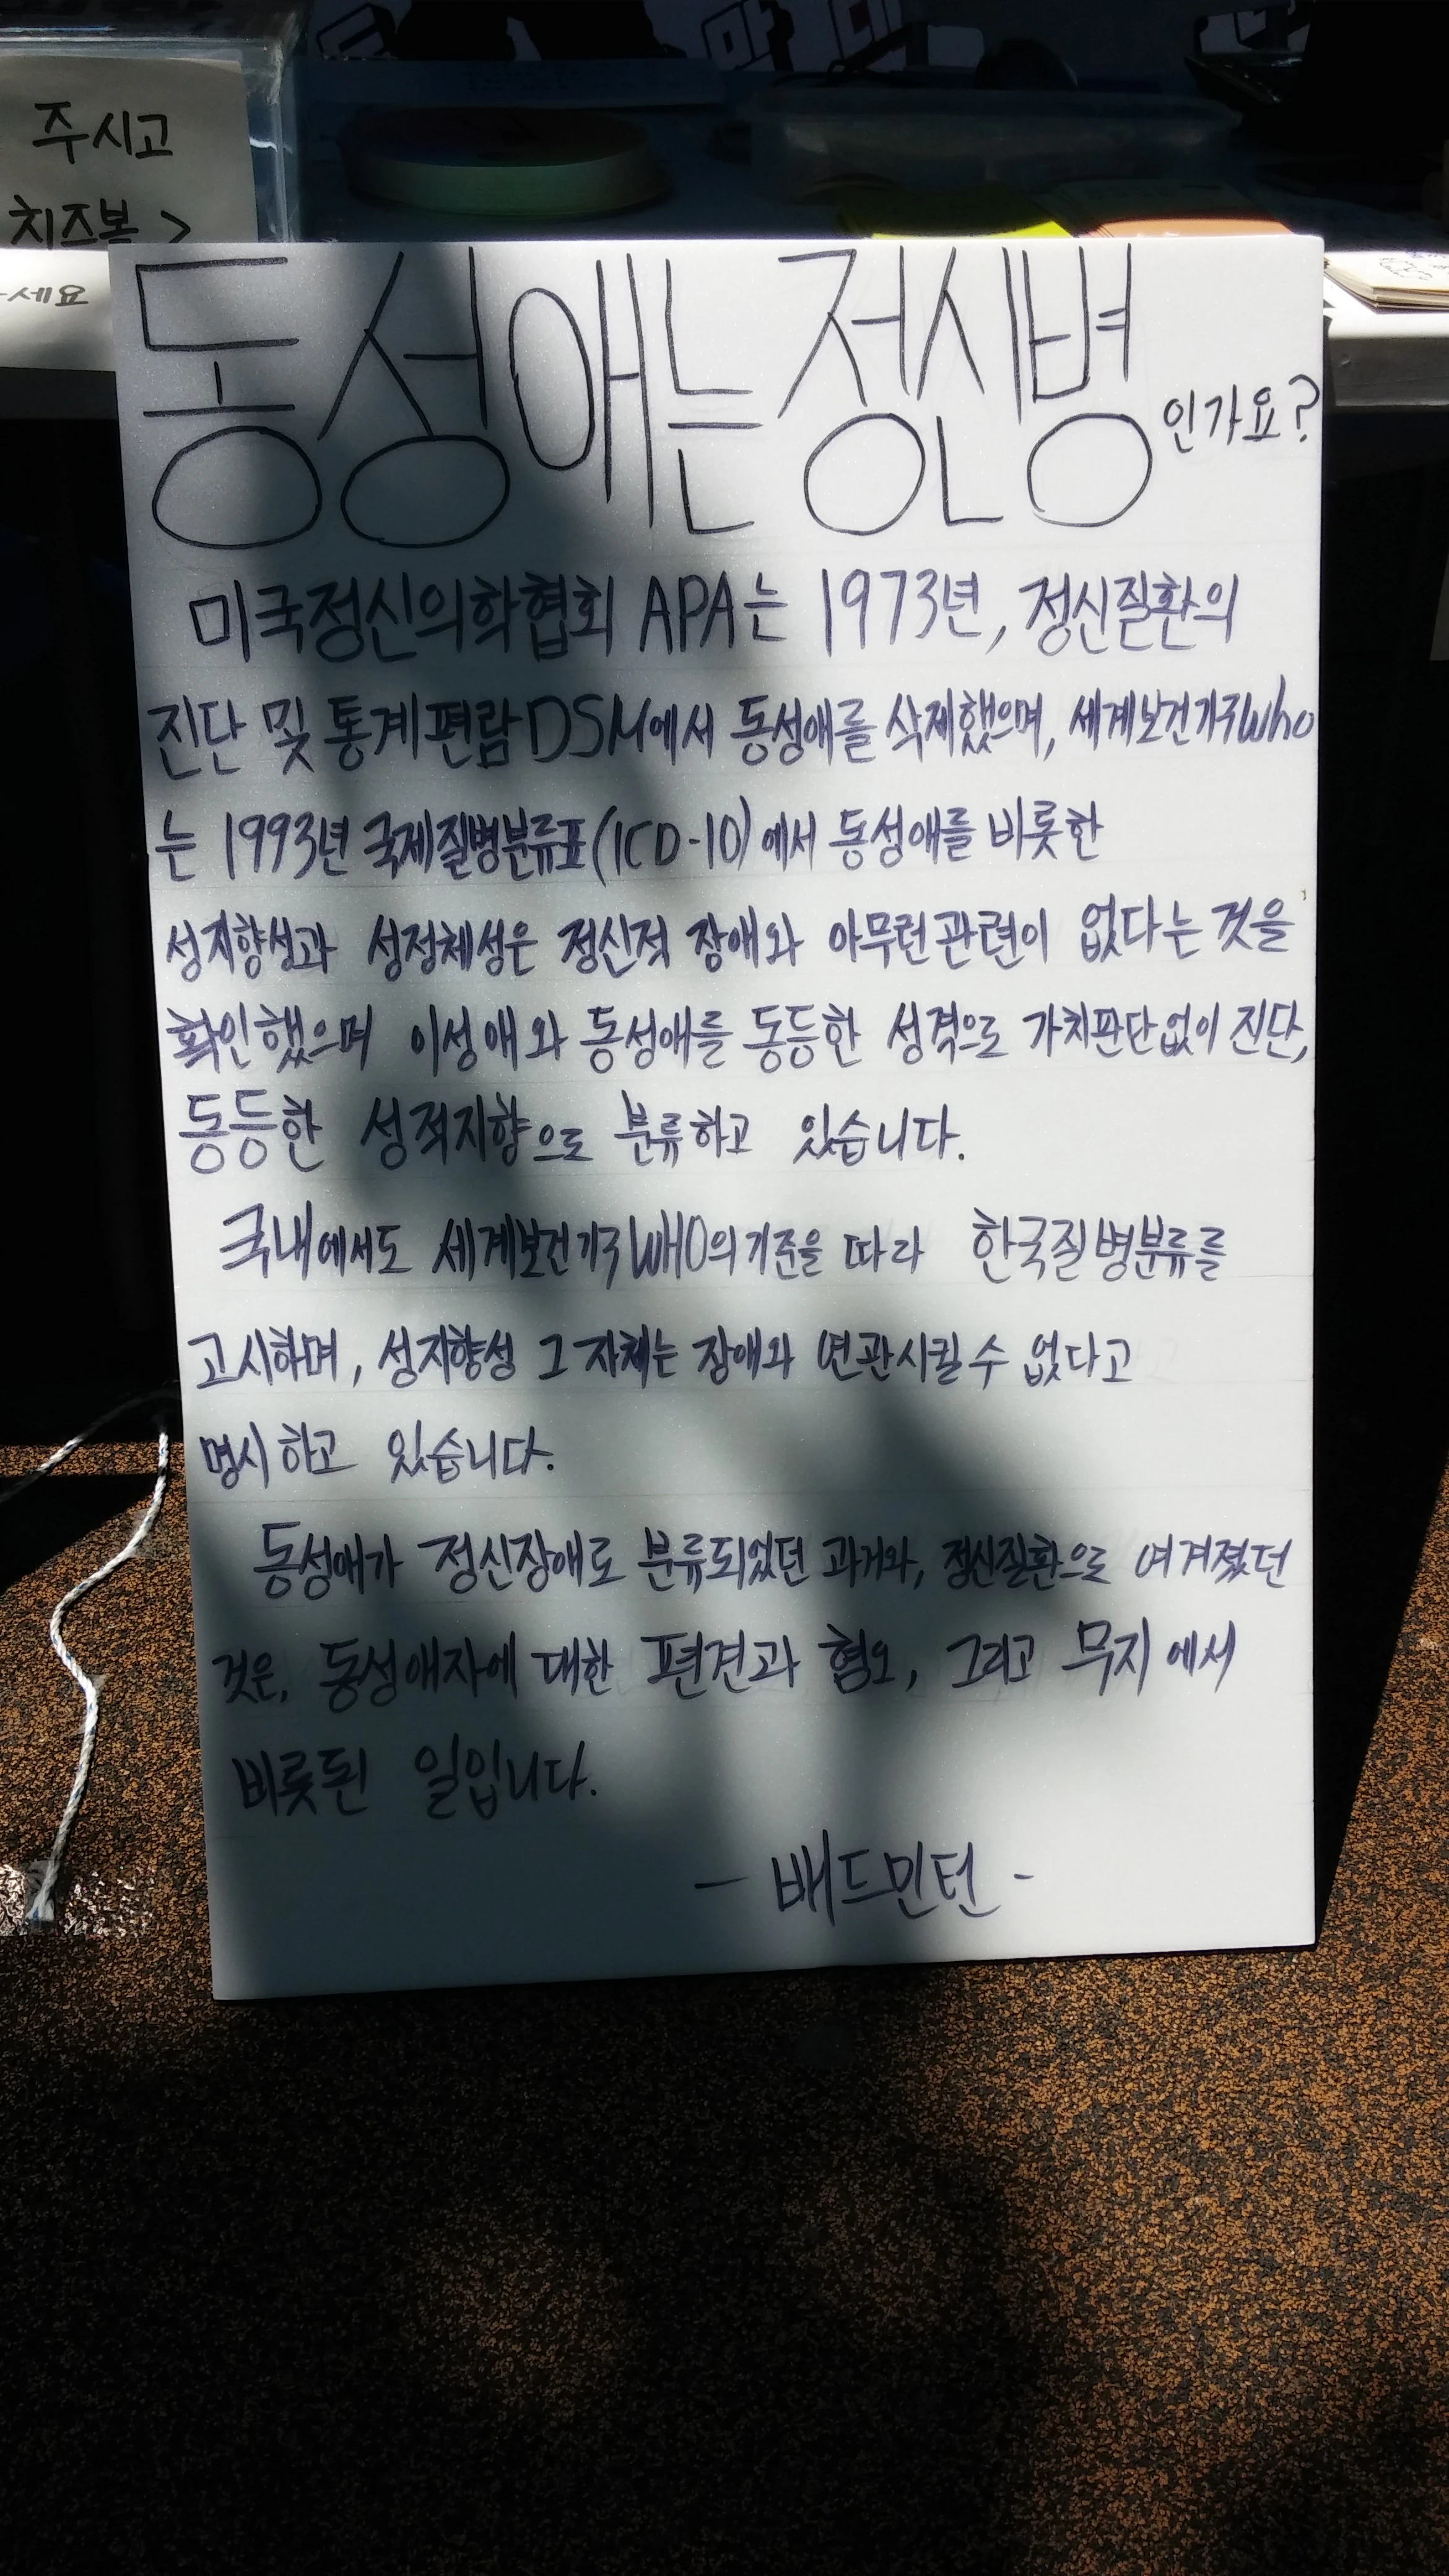 주시고
치즈볼 >
세요
동성애는 정신병인가요?
미국정신의학협회 APA는 1973년, 정신질환의
진단 및 통계편람 DSM에서 동성애를 삭제했으며, 세계보건기구 who
는 1993년 국제질병분류표(ICD-10)에서 동성애를 비롯한
성지향성과 성정체성은 정신적 장애와 아무런 관련이 없다는 것을
확인했으며 이성애와 동성애를 동등한 성격으로 가치판단없이 진단,
동등한 성적지향으로 분류하고 있습니다.
국내에서도 세계보건기구 WHO의 기준을 따라 한국질병분류를
고시하며, 성지향성 그 자체는 장애와 연관시킬 수 없다고
명시하고 있습니다.
동성애가 정신장애로 분류되었던 과거와, 정신질환으로 여겨졌던
것은, 동성애자에 대한 편견과 혐오, 그리고 무지에서
비롯된 일입니다.
- 배드민턴 -